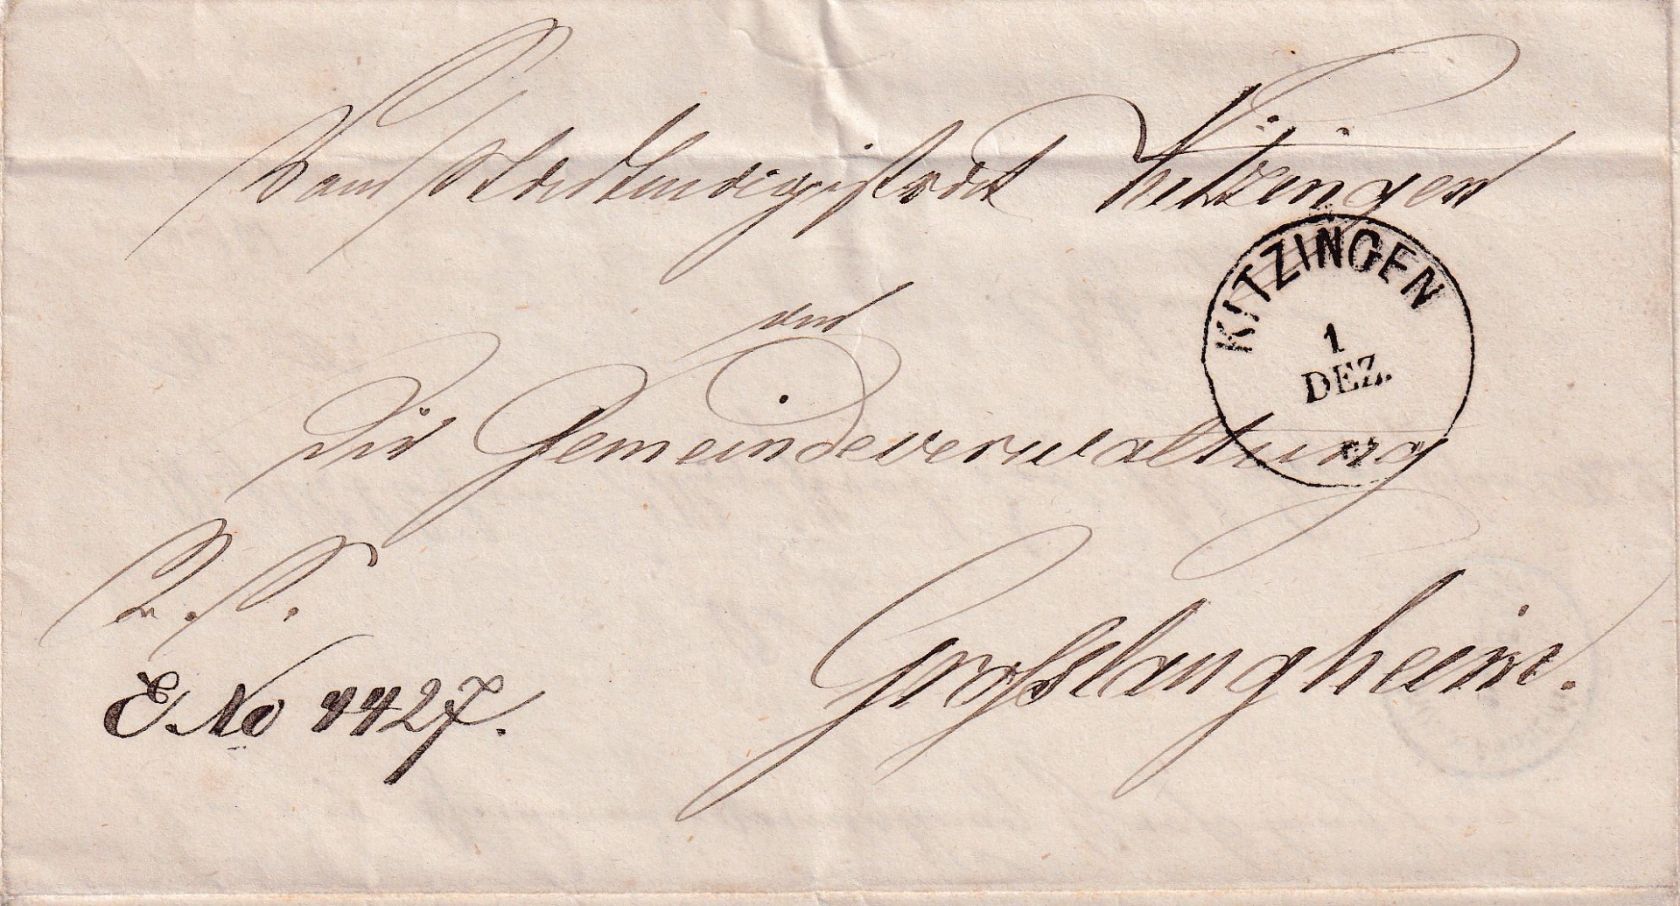 Vom Stadtmagistrat Kitzingen
an
KITZINGEN
1
DEZ.
die Gemeindeverwaltung
R. S.
Grosslangheim.
E. No 4427.